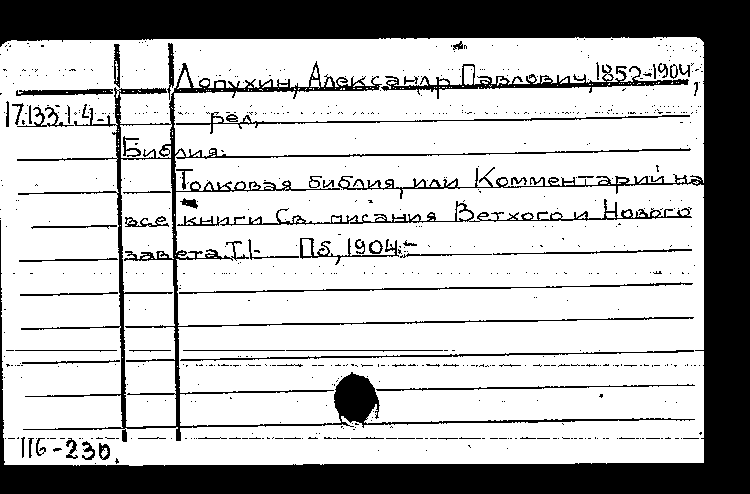 Лопухин, Александр Павлович, 1852-1904,
17.133.1.4-1 ред.
Библия.
Толковая библия, или Комментарий на
все книги Св. писания Ветхого и Нового
завета. Т.1- Пб., 1904.-
116-230.